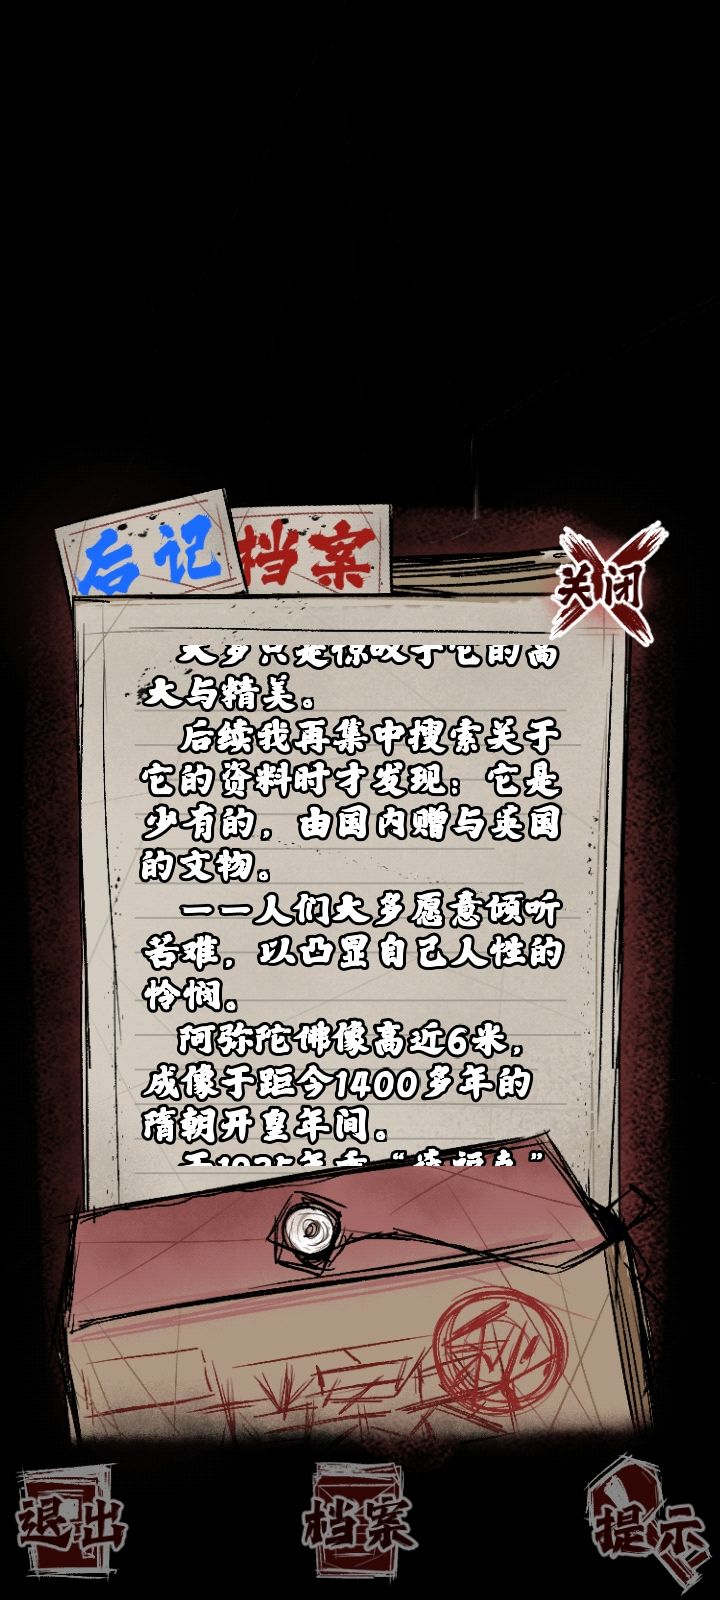 后记
档案
关闭
大多只是惊叹于它的高
大与精美。
后续我再集中搜索关于
它的资料时才发现：它是
少有的，由国内赠与英国
的文物。
——人们大多愿意倾听
苦难，以凸显自己人性的
怜悯。
阿弥陀佛像高近6米，
成像于距今1400多年的
隋朝开皇年间。
退出
档案
提示